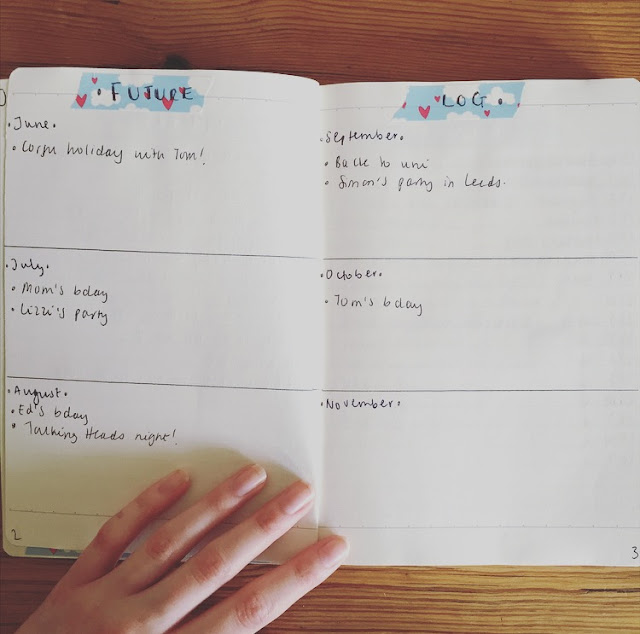 • FUTURE
• June •
• Corfu holiday with Tom!
• July •
• Mom's bday
• Lizzi's party
• August •
• Ed's bday
• Talking Heads night!
2
• LOG •
• September •
• Back to uni
• Simon's party in Leeds.
• October •
• Tom's bday
• November •
3